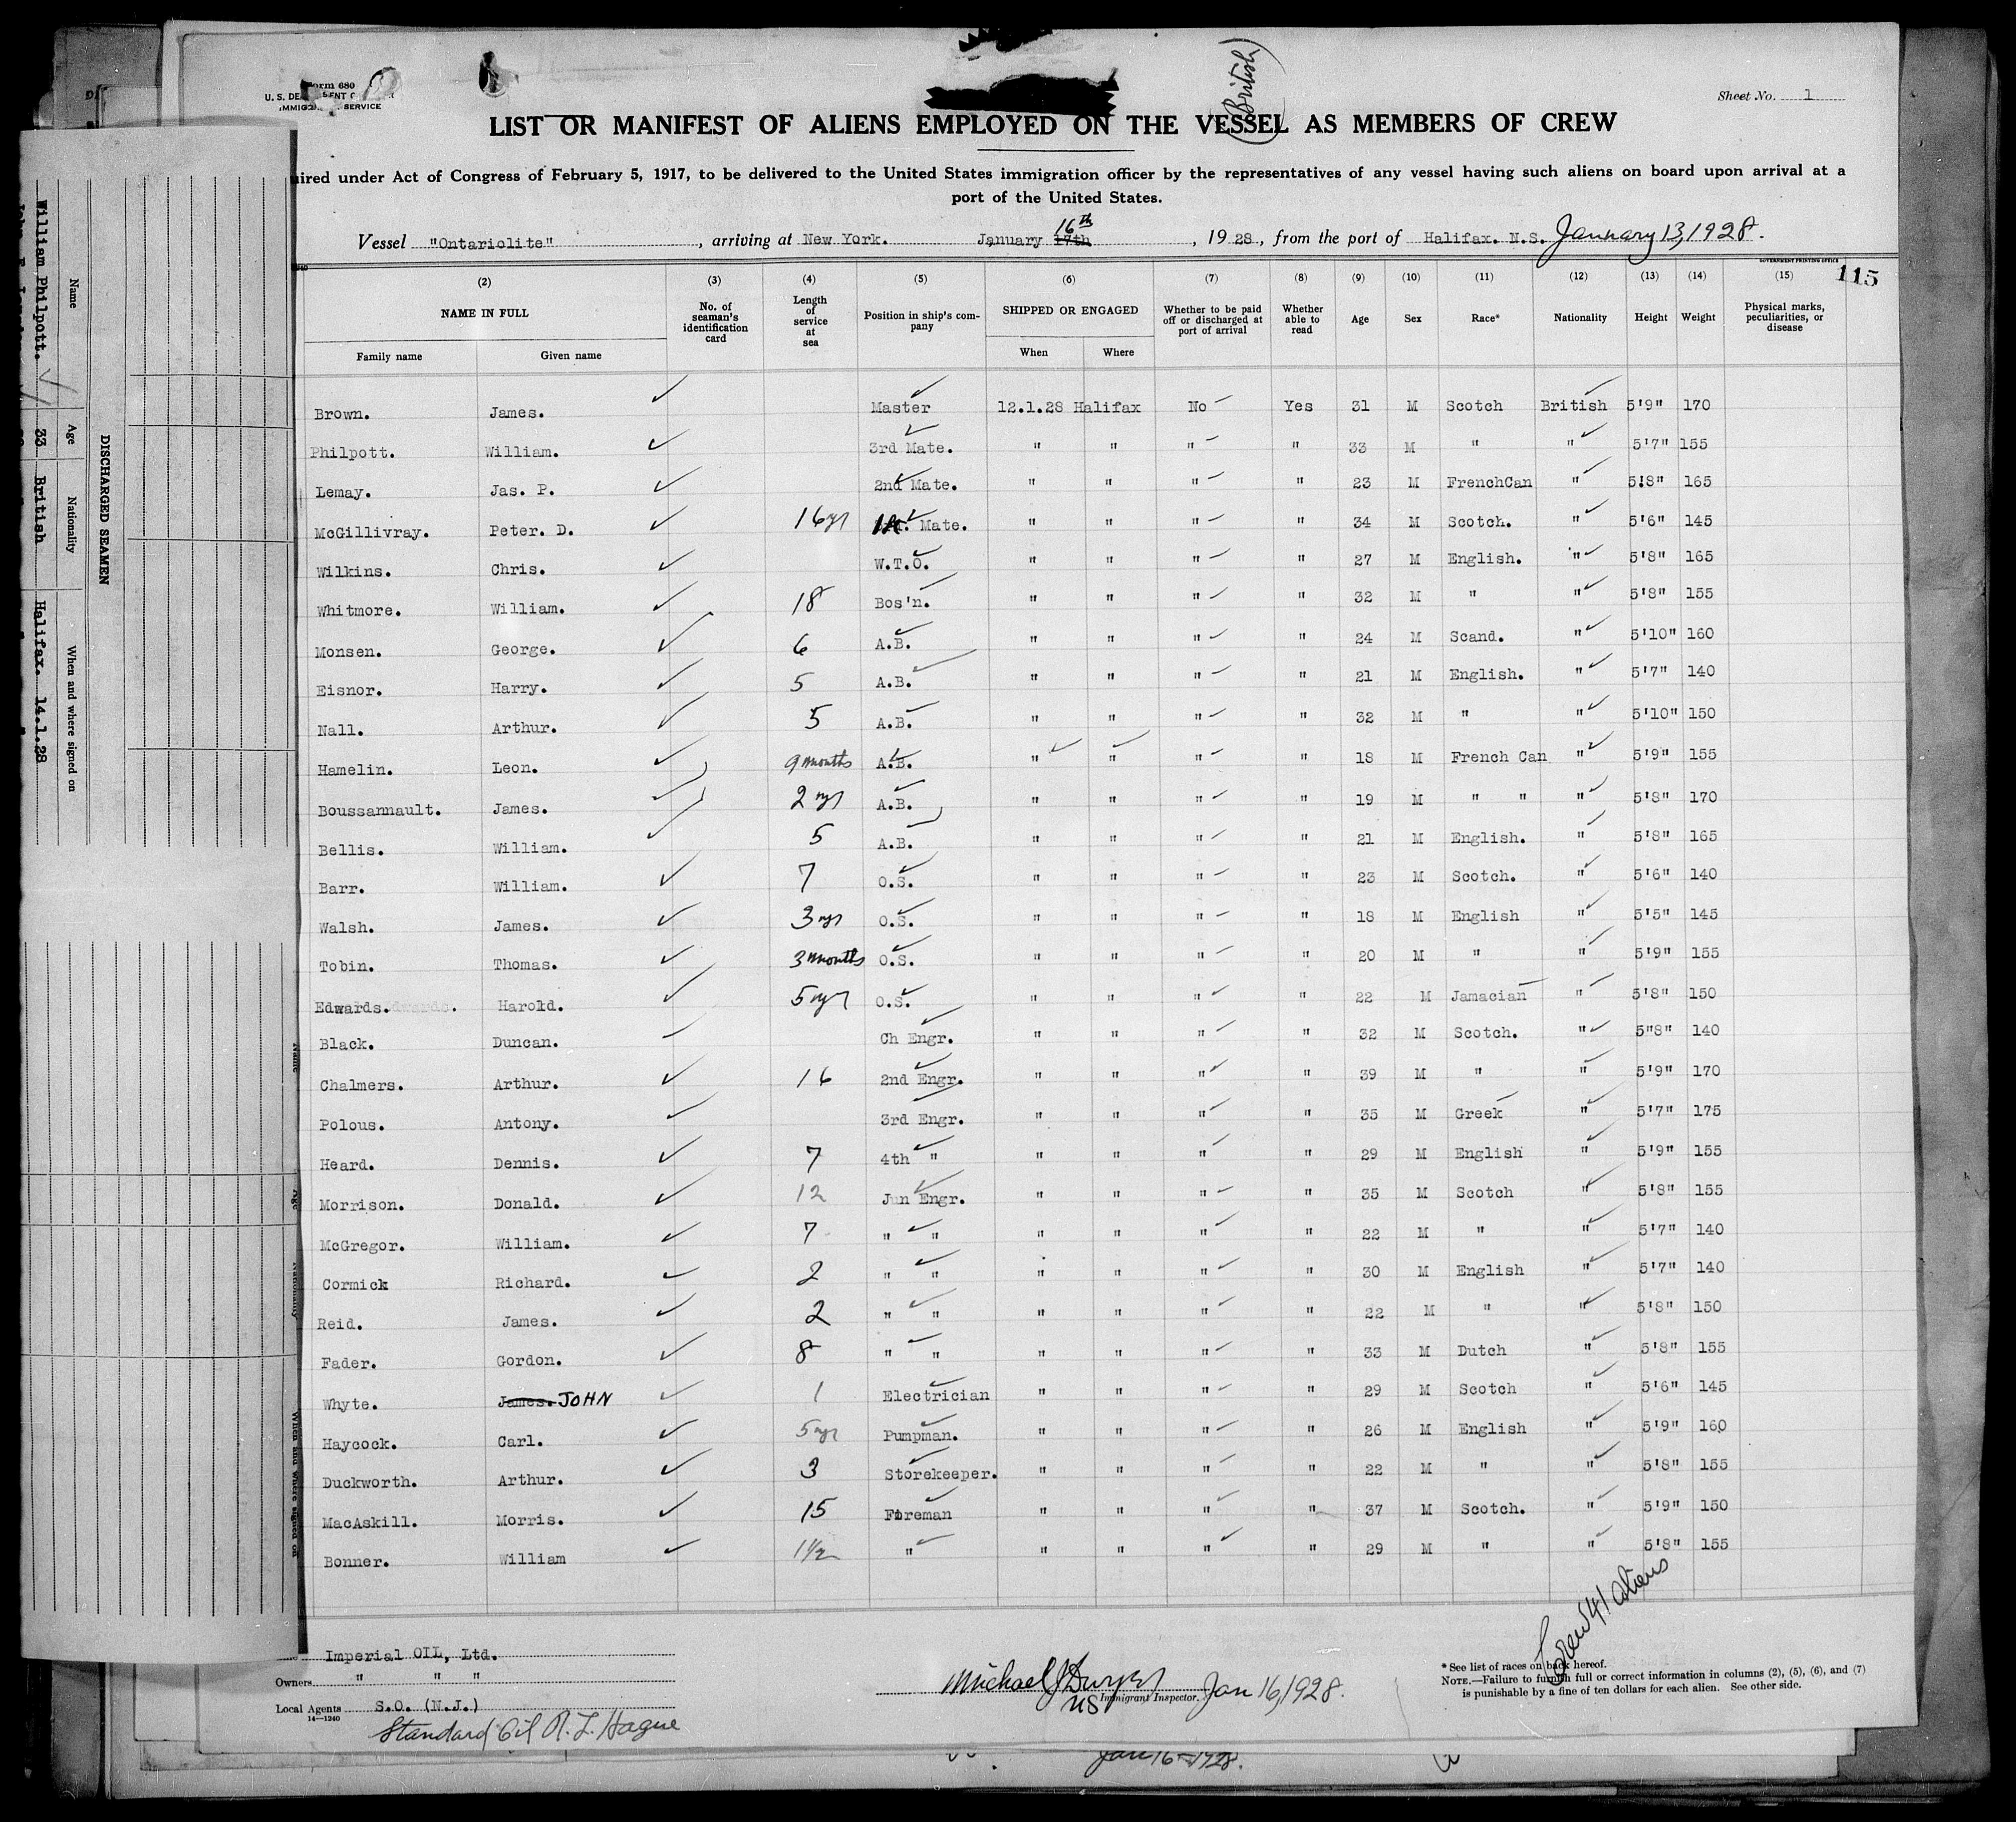 Form 680
U. S. DE
IMMIG SERVICE
(British)
Sheet No. 1
LIST OR MANIFEST OF ALIENS EMPLOYED ON THE VESSEL AS MEMBERS OF CREW
uired under Act of Congress of February 5, 1917, to be delivered to the United States immigration officer by the representatives of any vessel having such aliens on board upon arrival at a
port of the United States.
Vessel "Ontariolite", arriving at New York. January 17th 16th, 1928, from the port of Halifax. N.S. January 13, 1928.
GOVERNMENT PRINTING OFFICE
115
(2) (3) (4) (5) (6) (7) (8) (9) (10) (11) (12) (13) (14) (15)
NAME IN FULL No. of seaman's identification card Length of service at sea Position in ship's company SHIPPED OR ENGAGED Whether to be paid off or discharged at port of arrival Whether able to read Age Sex Race* Nationality Height Weight Physical marks, peculiarities, or disease
Family name Given name When Where
Brown. James. Master 12.1.28 Halifax No Yes 31 M Scotch British 5'9" 170
Philpott. William. 3rd Mate. " " " " 33 M " " 5'7" 155
Lemay. Jas. P. 2nd Mate. " " " " 23 M FrenchCan " 5'8" 165
McGillivray. Peter. D. 16 yr 1st. Mate. " " " " 34 M Scotch. " 5'6" 145
Wilkins. Chris. W.T.O. " " " " 27 M English. " 5'8" 165
Whitmore. William. 18 Bos'n. " " " " 32 M " " 5'8" 155
Monsen. George. 6 A.B. " " " " 24 M Scand. " 5'10" 160
Eisnor. Harry. 5 A.B. " " " " 21 M English. " 5'7" 140
Nall. Arthur. 5 A.B. " " " " 32 M " " 5'10" 150
Hamelin. Leon. 9 months A.B. " " " " 18 M French Can " 5'9" 155
Boussannault. James. 2 yr A.B. " " " " 19 M " " " 5'8" 170
Bellis. William. 5 A.B. " " " " 21 M English. " 5'8" 165
Barr. William. 7 O.S. " " " " 23 M Scotch. " 5'6" 140
Walsh. James. 3 yr O.S. " " " " 18 M English " 5'5" 145
Tobin. Thomas. 3 months O.S. " " " " 20 M " " 5'9" 155
Edwards. Harold. 5 yr O.S. " " " " 22 M Jamacian " 5'8" 150
Black. Duncan. Ch Engr. " " " " 32 M Scotch. " 5"8" 140
Chalmers. Arthur. 16 2nd Engr. " " " " 39 M " " 5'9" 170
Polous. Antony. 3rd Engr. " " " " 35 M Greek " 5'7" 175
Heard. Dennis. 7 4th " " " " " 29 M English " 5'9" 155
Morrison. Donald. 12 Jun Engr. " " " " 35 M Scotch " 5'8" 155
McGregor. William. 7 " " " " " " 22 M " " 5'7" 140
Cormick Richard. 2 " " " " " " 30 M English " 5'7" 140
Reid. James. 2 " " " " " " 22 M " " 5'8" 150
Fader. Gordon. 8 " " " " " " 33 M Dutch " 5'8" 155
Whyte. James. JOHN 1 Electrician " " " " 29 M Scotch " 5'6" 145
Haycock. Carl. 5 yr Pumpman. " " " " 26 M English " 5'9" 160
Duckworth. Arthur. 3 Storekeeper. " " " " 22 M " " 5'8" 155
MacAskill. Morris. 15 Foreman " " " " 37 M Scotch. " 5'9" 150
Bonner. William 1½ " " " " " 29 M " " 5'8" 155
Crew 41 aliens
Imperial OIL, Ltd.
Owners " " "
Local Agents S.O. (N.J.)
14—1240
Standard Oil R. L. Hague
Michael J Dwyer Jan 16, 1928.
US Immigrant Inspector.
* See list of races on back hereof.
NOTE.—Failure to furnish full or correct information in columns (2), (5), (6), and (7)
is punishable by a fine of ten dollars for each alien. See other side.
Jan 16—1928.
DISCHARGED SEAMEN
Name Age Nationality When and where signed on
William Philpott. 33 British Halifax. 14.1.28
Age
When and where signed on